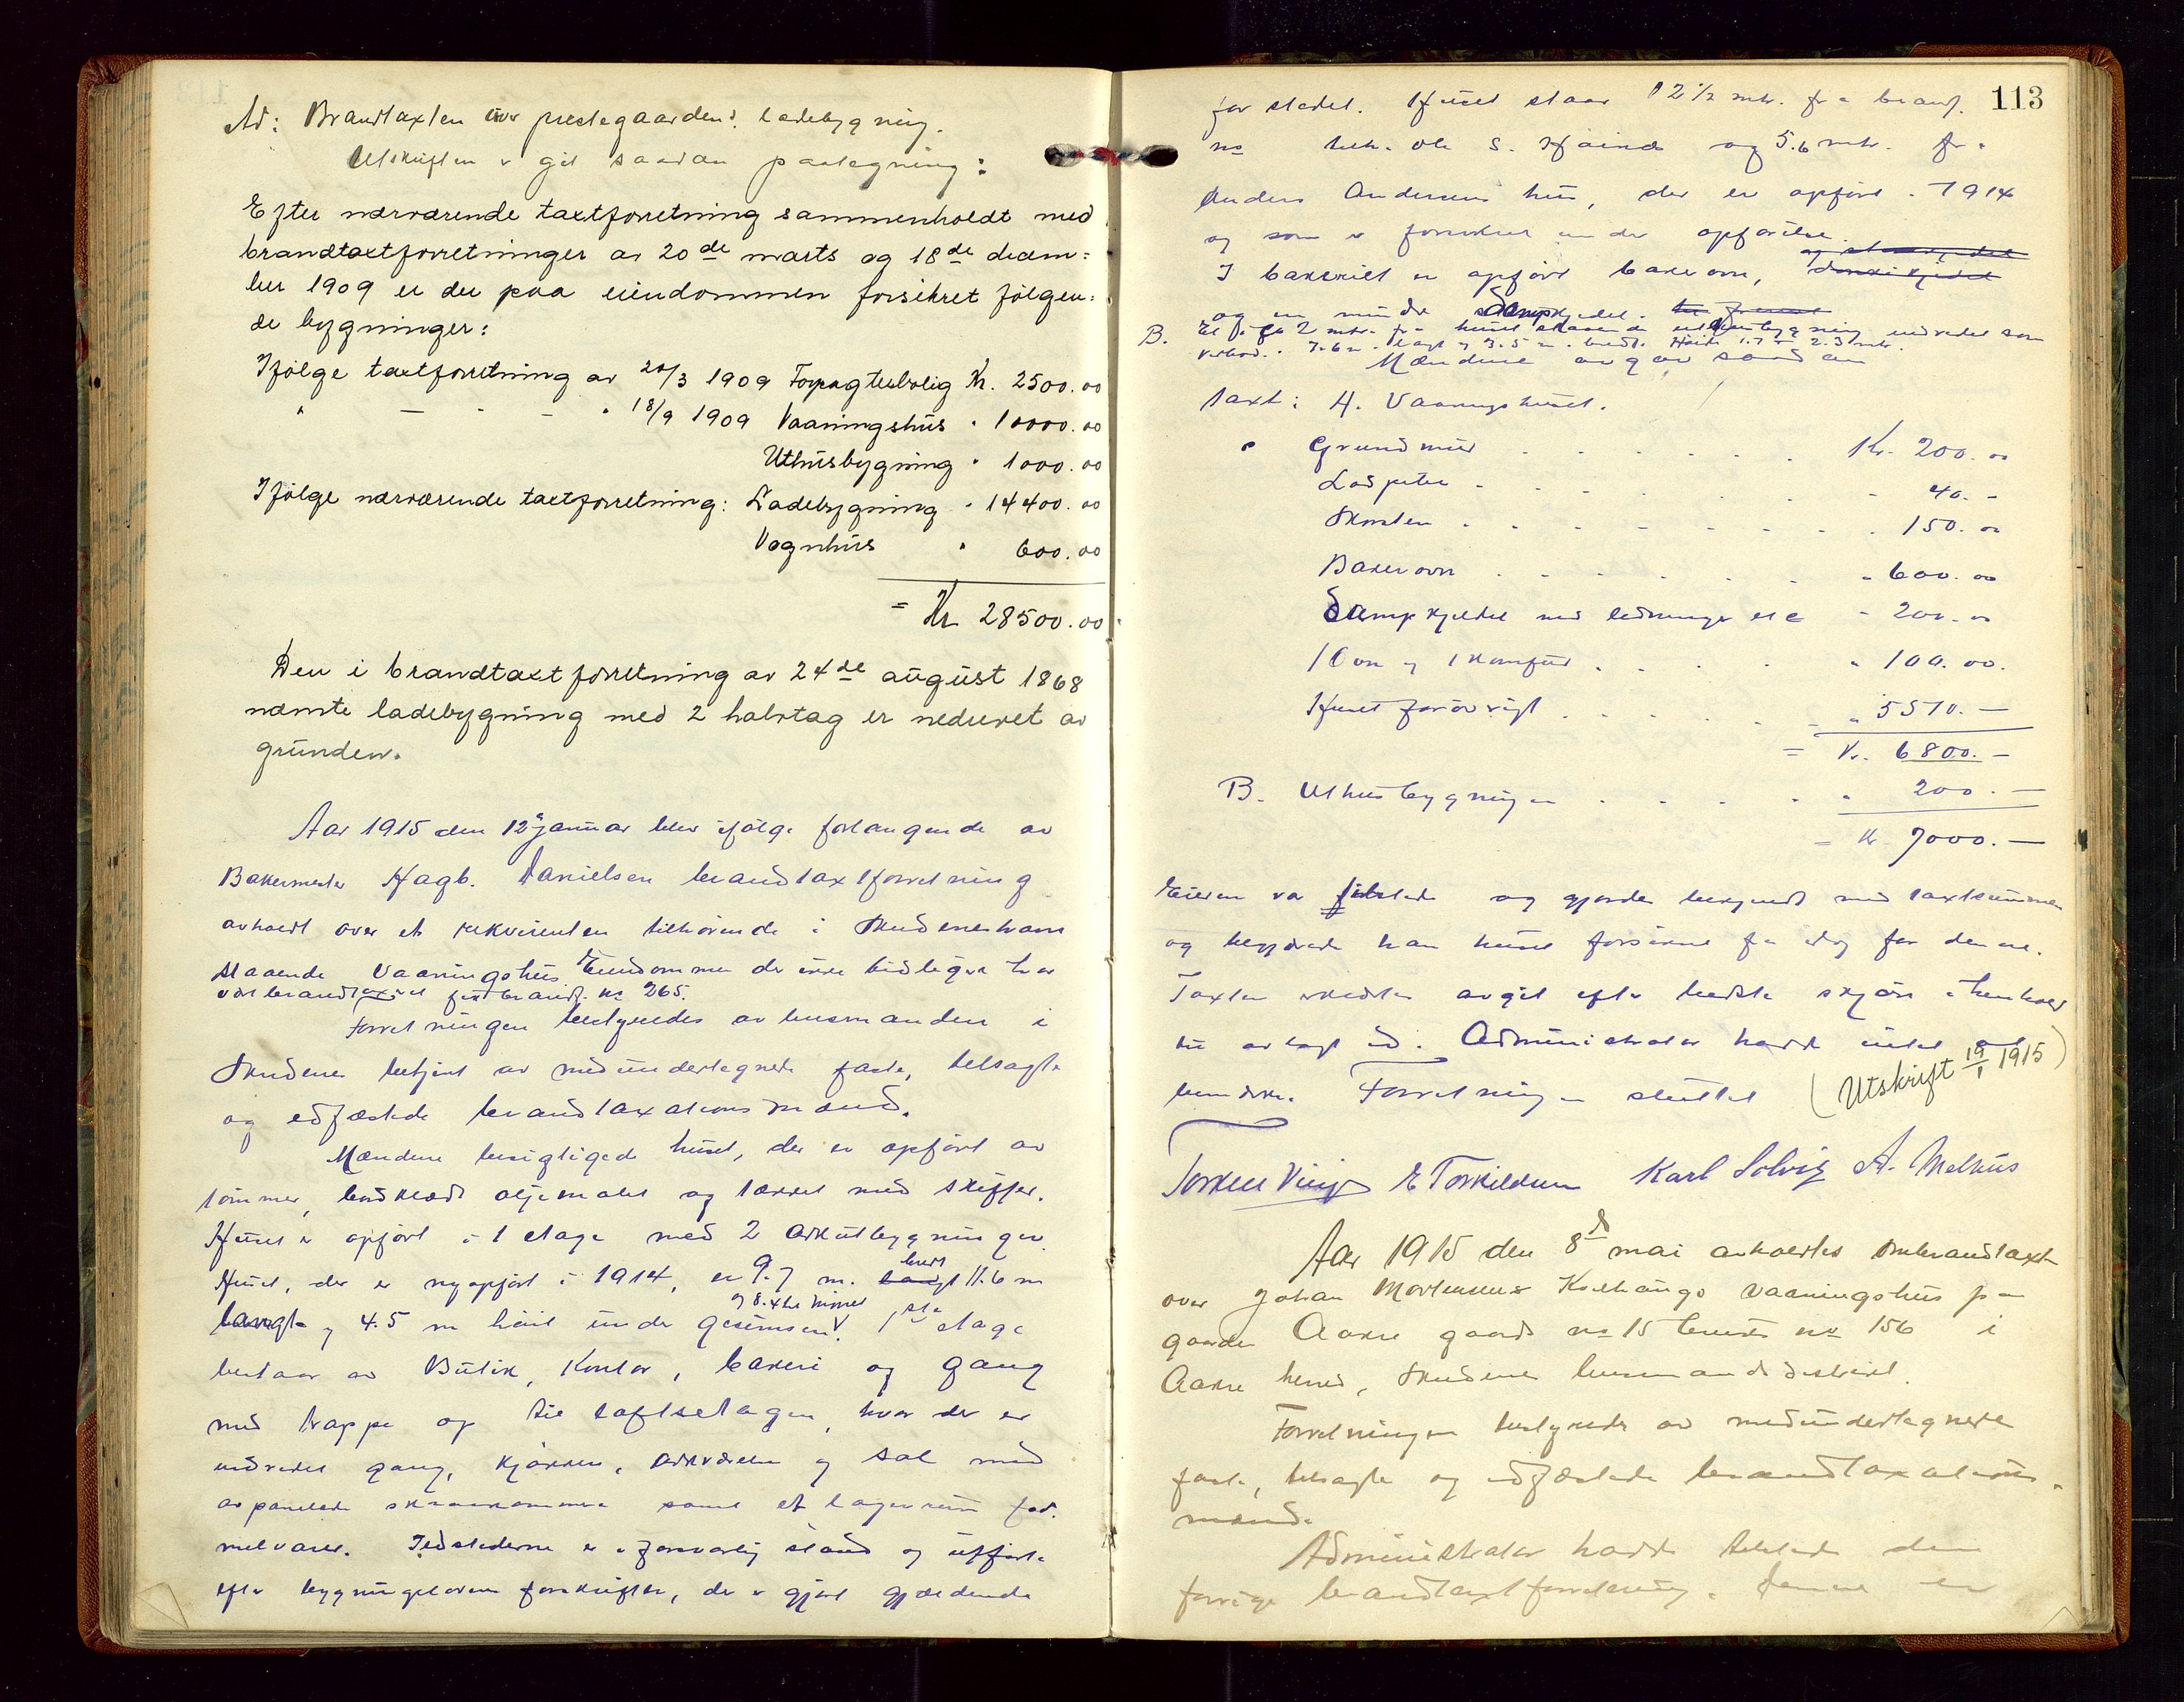 Ad: Brandtaxten over prestegaardens ladebygning.
Utskriften er git saadan paategning:
Efter nærværende taxtforretning sammenholdt med
brandtaxtforretninger av 20de marts og 18de decem=
ber 1909 er der paa eiendommen forsikret følgen=
de bygninger:
Ifølge taxtforretning av 20/3 1909 Forpagterbolig Kr. 2500.00
" — " — " 18/9 1909 Vaaningshus " 10000.00
Uthusbygning " 1000.00
Ifølge nærværende taxtforretning: Ladebygning " 14400.00
Vognhus " 600.00
= Kr 28500.00
Den i brandtaxtforretning av 24de august 1868
nævnte ladebygning med 2 halvtag er nedrevet av
grunden.
Aar 1915 den 12te januar blev ifølge forlangende av
Bakermester Hagb. Danielsen brandtaxtforretning
avholdt over et rekvirenten tilhørende i Skudeneshavn
staaende Vaaningshus. Eiendommen der ikke tidligere har
vært brandtaxert faar brandf. no 265.
Forretningen bestyredes av lensmanden i
Skudenes betjent av medundertegnede faste, tilsagte
og edfæstede brandtaxationsmænd.
Mændene besigtigede huset, der er opført av
tømmer, bordklædt oljemalet og tækket med skiffer.
Huset er opført i 1 etage med 2 arkutbygninger.
Huset, der er nyopført i 1914, er 9.7 m. bredt 11.6 m
langt og 4.5 m høit under gesimsen og 8. til himmel. 1ste etage
bestaar av Butik, Kontor, bakeri og gang
med trappe op til loftsetagen, hvor der er
indredet gang, kjøkken, arkværelse og sal med
avpanelede skraakammere samt et lagerrum for
melvarer. Ildstederne er i forsvarlig stand og utført
efter bygningslovens forskrifter, der er gjort gjældende
113
for stedet. Huset staar 12 1/2 mtr. fra brandf.
no tilh. Ole S. og 5.6 mtr. fra
Anders Andersens hus, der er opført i 1914
og som er forsikret under opførelse.
I bakeriet er opført bakerovn,
og en mindre Dampkjedel.
B. Et ca 2 mtr. fra huset staaende uthusbygning indredet som
7.6 m. langt og 3.5 m. bredt. Høide 1.7 2.3 mtr.
Mændene avgav saadan
taxt: A. Vaaningshuset.
Grundmur Kr. 200.00
Løspeter " 40.-
Skorsten " 150.00
Bakerovn " 600.00
Dampkjedel med ledninger etc " 200.00
1 Ovn og 1 komfur " 100.00.
Huset forøvrigt " 5510.—
= Kr. 6800.—
B. Uthusbygningen " 200.—
= Kr 7000.—
Eieren var tilstede og gjordes bekjendt med taxtsummen
og begjærede han huset forsikret fra idag for denne.
Taxten erklærtes avgit efter bedste skjøn i henhold
til avlagt ed. Administrator hadde intet at
bemerke. Forretningen sluttet (Utskrift 19/1 1915)
Torkell Viig E Torkildsen Karl Solvig A. Melhus
Aar 1915 den 8de mai avholdtes ombrandtaxt
over Johan Mortensens Kolhaugs vaaningshus paa
gaarden Aakre gaards no 15 bruks no 156 i
Aakre herred, Skudenes lensmandsdistrikt.
Forretningen bestyredes av medundertegnede
faste, tilsagte og edfæstede brandtaxations-
mænd.
Administrator hadde tilstede den
forrige brandtaxtforretning. Denne er